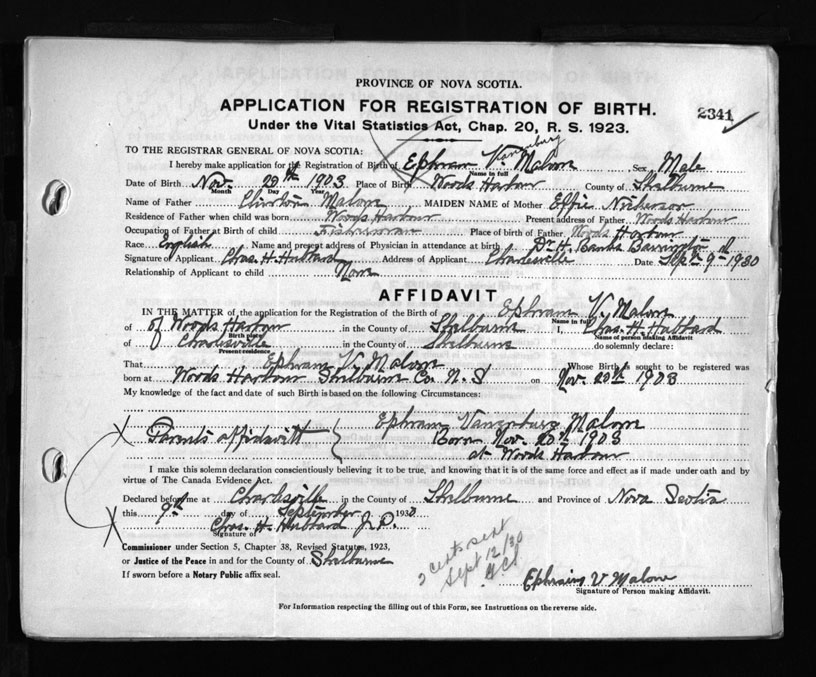 PROVINCE OF NOVA SCOTIA.
APPLICATION FOR REGISTRATION OF BIRTH.
2341
Under the Vital Statistics Act, Chap. 20, R. S. 1923.
TO THE REGISTRAR GENERAL OF NOVA SCOTIA:
I hereby make application for the Registration of Birth of Ephram V. Malone Sex Male
Name in full
Date of Birth Nov. 20th 1903 Place of Birth Woods Harbour County of Shelburne
Month Day Year
Name of Father Malone MAIDEN NAME of Mother Effie Nickerson
Residence of Father when child was born Woods Harbour Present address of Father Woods Harbour
Occupation of Father at Birth of child Fisherman Place of birth of Father Woods Harbour
Race English Name and present address of Physician in attendance at birth Dr. H. Banks Barrington
Signature of Applicant Chas. H. Hubbard Address of Applicant Charlesville Date Sept. 9th 1930
Relationship of Applicant to child None
AFFIDAVIT
IN THE MATTER of the application for the Registration of the Birth of Ephram V. Malone
Name in full
of of Woods Harbour in the County of Shelburne I, Chas. H. Hubbard
Birth place
Name of person making Affidavit
of Charlesville in the County of Shelburne do solemnly declare:
Present residence
That Ephram V. Malone Whose Birth is sought to be registered was
born at Woods Harbour Shelburne Co. N. S on Nov. 20th 1903
My knowledge of the fact and date of such Birth is based on the following Circumstances:
Ephram Vanenburg Malone
Parents affidavitt Born Nov. 20th 1903
at Woods Harbour
I make this solemn declaration conscientiously believing it to be true, and knowing that it is of the same force and effect as if made under oath and by
virtue of The Canada Evidence Act.
Declared before me at Charlesville in the County of Shelburne and Province of Nova Scotia
this 9th day of September 1930
Chas. H. Hubbard J. P.
Signature of
Commissioner under Section 5, Chapter 38, Revised Statutes, 1923,
or Justice of the Peace in and for the County of Shelburne
If sworn before a Notary Public affix seal.
2 certs sent
Sept 12/30
Ephraim V Malone
Signature of Person making Affidavit.
For Information respecting the filling out of this Form, see Instructions on the reverse side.